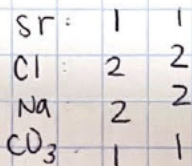 Sr: 1 1
Cl: 2 2
Na: 2 2
CO₃ 1 1